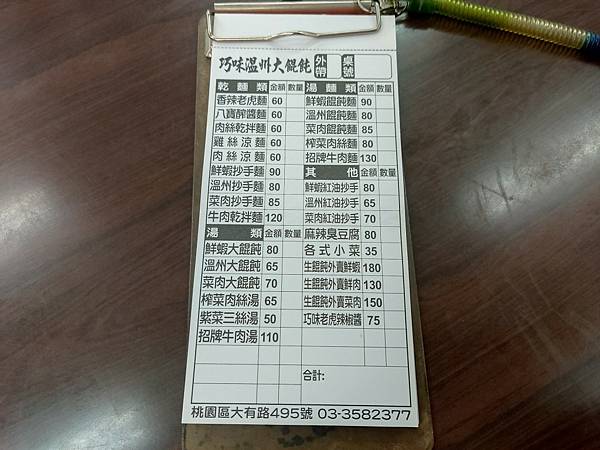 巧味溫州大餛飩 外帶 桌號
乾麵類 金額 數量
香辣老虎麵 60
八寶醡醬麵 60
肉絲乾拌麵 60
雞絲涼麵 60
肉絲涼麵 60
鮮蝦抄手麵 90
溫州抄手麵 80
菜肉抄手麵 85
牛肉乾拌麵 120
湯類 金額 數量
鮮蝦大餛飩 80
溫州大餛飩 65
菜肉大餛飩 70
榨菜肉絲湯 65
紫菜三絲湯 50
招牌牛肉湯 110
湯麵類 金額 數量
鮮蝦餛飩麵 90
溫州餛飩麵 80
菜肉餛飩麵 85
榨菜肉絲麵 80
招牌牛肉麵 130
其他 金額 數量
鮮蝦紅油抄手 80
溫州紅油抄手 65
菜肉紅油抄手 70
麻辣臭豆腐 80
各式小菜 35
生餛飩外賣鮮蝦 180
生餛飩外賣鮮肉 130
生餛飩外賣菜肉 150
巧味老虎辣椒醬 75
合計:
桃園區大有路495號 03-3582377